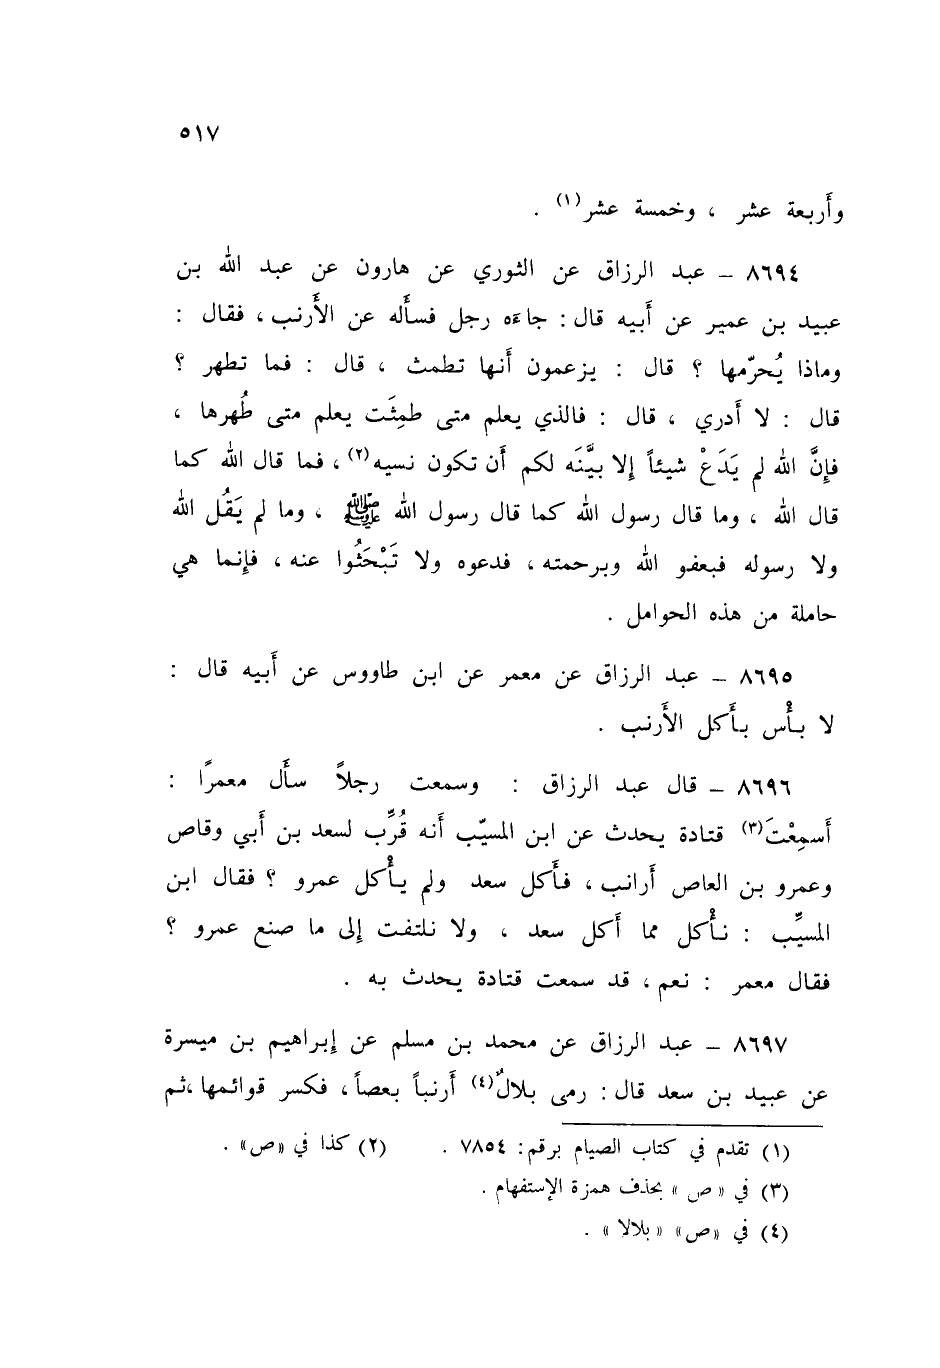 ٥١٧
وأَربعة عشر ، وخمسة عشر(١) .
٨٦٩٤ – عبد الرزاق عن الثوري عن هارون عن عبد الله بن
عبيد بن عمير عن أَبيه قال : جاءه رجل فسأَله عن الأَرنب ، فقال :
وماذا يُحرّمها ؟ قال : يزعمون أَنها تطمث ، قال : فما تطهر ؟
قال : لا أَدري ، قال : فالذي يعلم متى طمِثَت يعلم متى طُهرها ،
فإنَّ الله لم يَدَعْ شيئاً إلا بيَّنَه لكم أَن تكون نسيه(٢) ، فما قال الله كما
قال الله ، وما قال رسول الله كما قال رسول الله ﷺ ، وما لم يَقُل الله
ولا رسوله فبعفو الله وبرحمته ، فدعوه ولا تَبْحَثُوا عنه ، فإنما هي
حاملة من هذه الحوامل .
٨٦٩٥ – عبد الرزاق عن معمر عن ابن طاووس عن أَبيه قال :
لا بأْس بأَكل الأَرنب .
٨٦٩٦ – قال عبد الرزاق : وسمعت رجلاً سأَل معمرًا :
أَسمِعْتَ(٣) قتادة يحدث عن ابن المسيّب أَنه قُرِّب لسعد بن أَبي وقاص
وعمرو بن العاص أَرانب ، فأَكل سعد ولم يأْكل عمرو ؟ فقال ابن
المسيِّب : نأْكل مما أَكل سعد ، ولا نلتفت إلى ما صنع عمرو ؟
فقال معمر : نعم ، قد سمعت قتادة يحدث به .
٨٦٩٧ – عبد الرزاق عن محمد بن مسلم عن إبراهيم بن ميسرة
عن عبيد بن سعد قال : رمى بلالٌ(٤) أَرنباً بعصاً ، فكسر قوائمها ، ثم
(١) تقدم في كتاب الصيام برقم : ٧٨٥٤ . (٢) كذا في «ص» .
(٣) في «ص» بحذف همزة الإستفهام .
(٤) في «ص» «بلالا» .